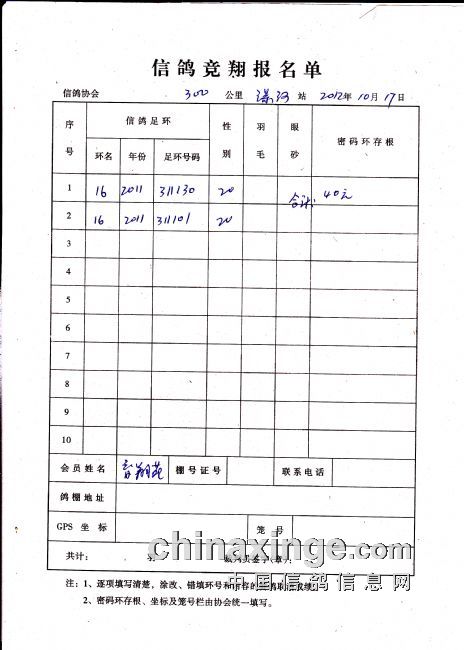 信鸽竞翔报名单
信鸽协会 300 公里 漯河 站 2012年10月17日
序号 信鸽足环 性别 羽毛 眼砂 密码环存根
环名 年份 足环号码
1 16 2011 311130 20 合计: 40元
2 16 2011 311101 20
3
4
5
6
7
8
9
10
会员姓名 翔苑 棚号证号 联系电话
鸽棚地址
GPS 坐标 笼号
共计:
chinaxinge.com
中国信鸽信息网
注:1、逐项填写清楚,涂改、错填环号和
2、密码环存根、坐标及笼号栏由协会统一填写。